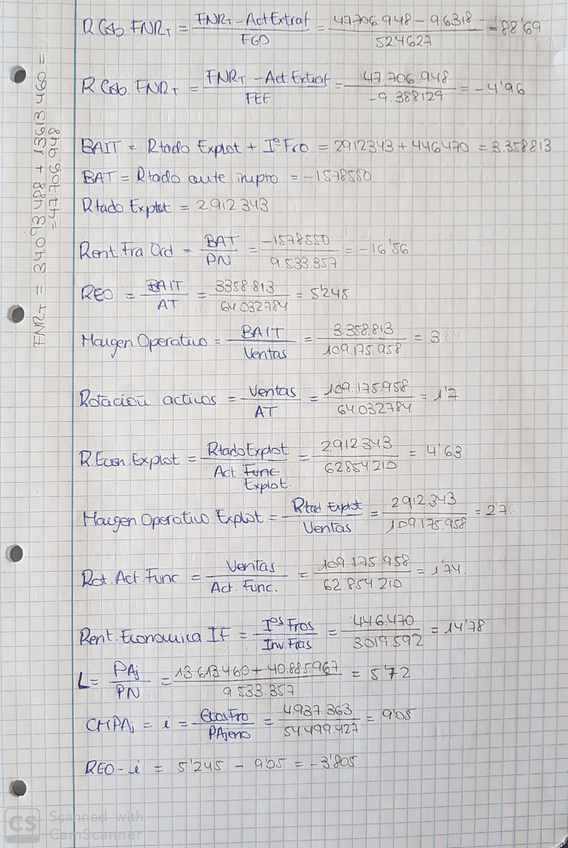 R Cob FNRT = FNRT - Act Extraf / FGO = 47706.948 - 96318 / 524627 = -88'69
R Cob. FNRT = FNRT - Act Extraf / FEE = 47.706.948 / -9.388129 = -4'96
FNRT = 34093488 + 13613460 = 47.706.948
BAIT = Rtado Explot + Iº Fro = 2912343 + 446470 = 3.358813
BAT = Rtado ante impto = -1578550
Rtado Explot = 2.912 343
Rent. Fra Ord = BAT / PN = -1578550 / 9.533 357 = -16'56
REO = BAIT / AT = 3358 813 / 64.032784 = 5'245
Margen Operativo = BAIT / Ventas = 3358.813 / 109.175.958 = 3
Rotación activos = Ventas / AT = 109.175958 / 64.032784 = 1'7
R Econ. Explot = Rtado Explot / Act Func Explot. = 2.912 343 / 62854210 = 4'63
Margen Operativo Explot = Rtad Explot / Ventas = 2912.343 / 109.175.958 = 27
Rot. Act. Func = Ventas / Act Func. = 109.175.958 / 62.854 210 = 1'74
Rent. Economica IF = Iºs Fros / Inv. Fras = 446.470 / 3019.592 = 14'78
L = PAj / PN = 13.613.460 + 40.885.967 / 9.533.357 = 5'72
CMPAj = i = Gtos Fro / PAjeno = 4937.363 / 54499.427 = 9'05
REO - i = 5'245 - 9'05 = -3'805
CS Scanned with
CamScanner